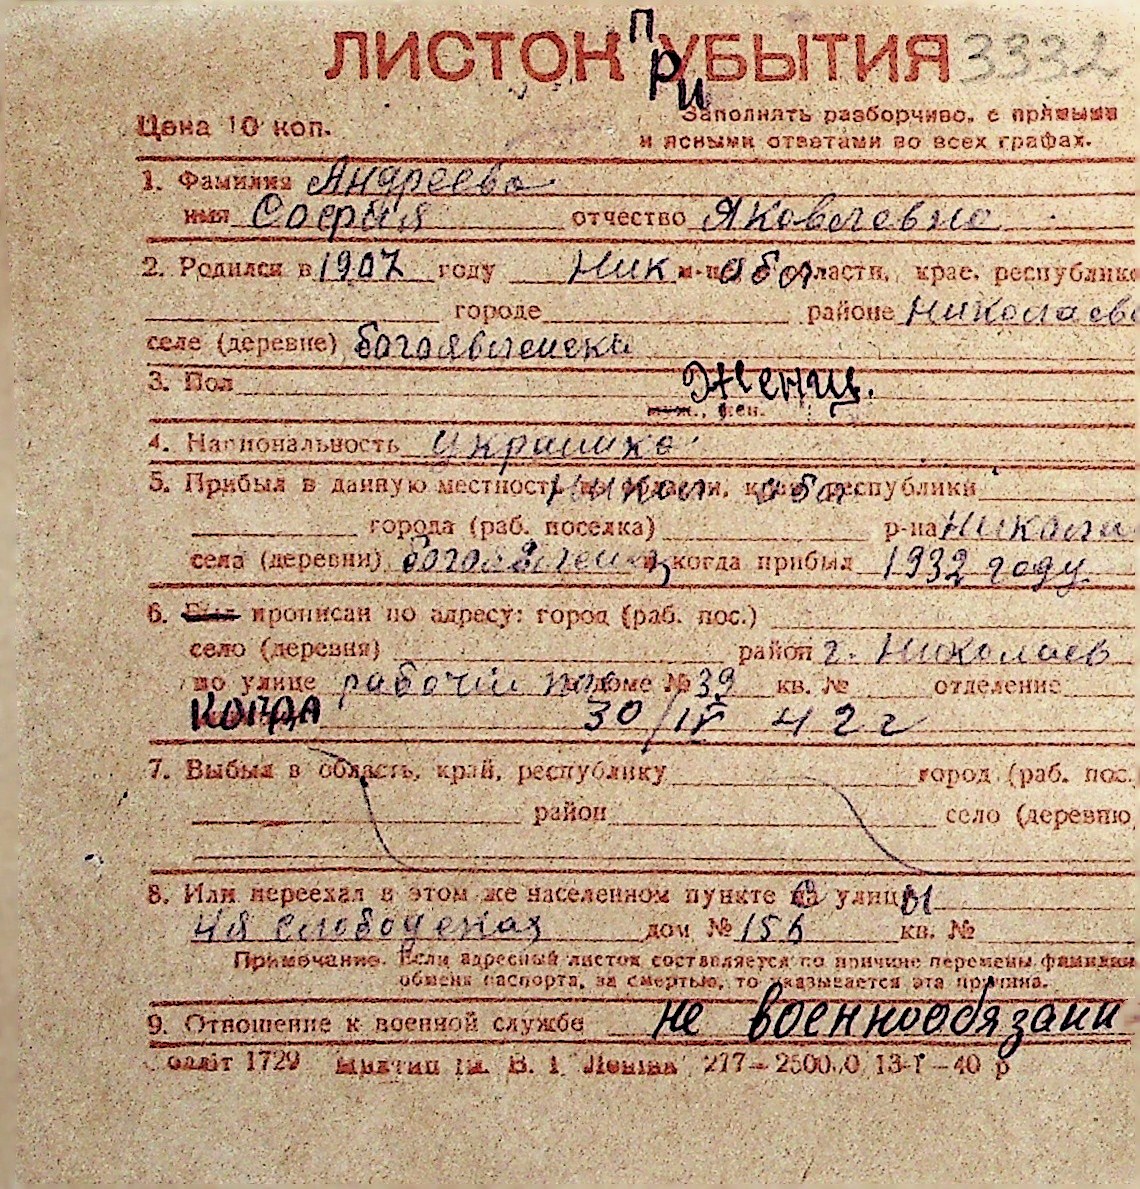 ЛИСТОК ПРИ УБЫТИЯ 3332
Цена 10 коп.
Заполнять разборчиво, с прямыми
и ясными ответами во всех графах.
1. Фамилия Андреева
имя София отчество Яковлевна
2. Родился в 1907 году Ник обл области, крае, республике
городе районе Николаевс
селе (деревне) Богоявленски
3. Пол Женщ.
муж., жен.
4. Национальность украинка
5. Прибыл в данную местность из области, края, республики
города (раб. поселка) р-на Никола
села (деревни) когда прибыл 1932 году
6. Был прописан по адресу: город (раб. пос.)
село (деревня) район г. Николаев
по улице рабочий дом № 39 кв. № отделение
КОГДА 30/IV 42 г
7. Выбыл в область, край, республику город (раб. пос.
район село (деревню
8. Или переехал в этом же населенном пункте С улицЫ
4я слободская дом № 156 кв. №
Примечание. Если адресный листок составляется по причине перемены фамилии
обмена паспорта, за смертью, то указывается эта причина.
9. Отношение к военной службе не военнообязанн
1729 В. І Леніна 277—2500.0 13-І—40 р